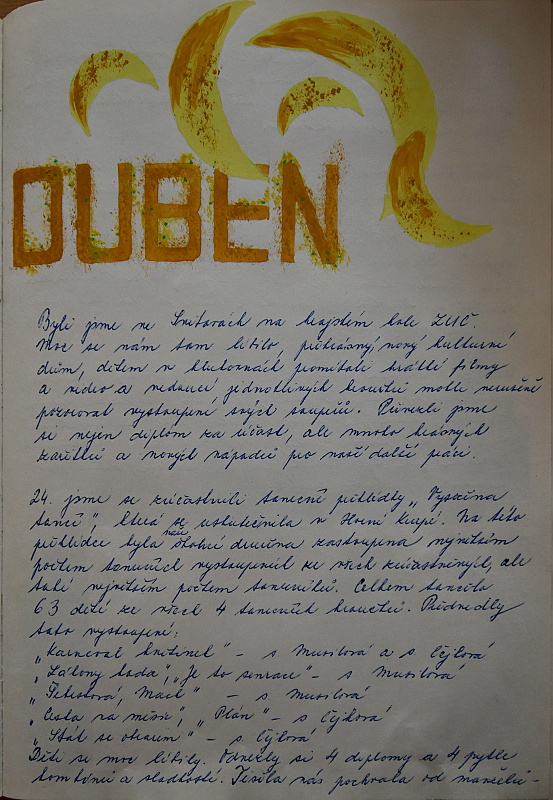 DUBEN
Byli jsme ve Svitavách na krajském kole ZUČ.
Moc se nám tam líbilo, překrásný, nový kulturní
dům, dětem v klubovnách promítali krátké filmy
a videa a vedoucí jednotlivých kroužků mohli nerušeně
pozorovat vystoupení svých soupeřů. Přivezli jsme
si nejen diplom za účast, ale mnoho krásných
zážitků a nových nápadů pro naší další práci.
24. jsme se zúčastnili taneční přehlídky „Vysočina
tančí", která se uskutečnila v Horní Krupé. Na této
přehlídce byla naše družina zastoupena největším
počtem tanečních vystoupení ze všech zúčastněných, ale
také největším počtem tanečníků. Celkem tančilo
63 dětí ze všech 4 tanečních kroužků. Předvedly
tato vystoupení:
„Karneval květinek" - s. Musilová a s. Čýlová
„ boda", „Je to senzace" - s Musilová
„ Macl" - s Musilová
„Cesta na měsíc", „Plán" - s
„Stát se " - s. Čýlová
Děti se moc líbily. Odvezly si 4 diplomy a 4 pytle
bonbónů a sladkostí. Těšila nás pochvala od manželů-